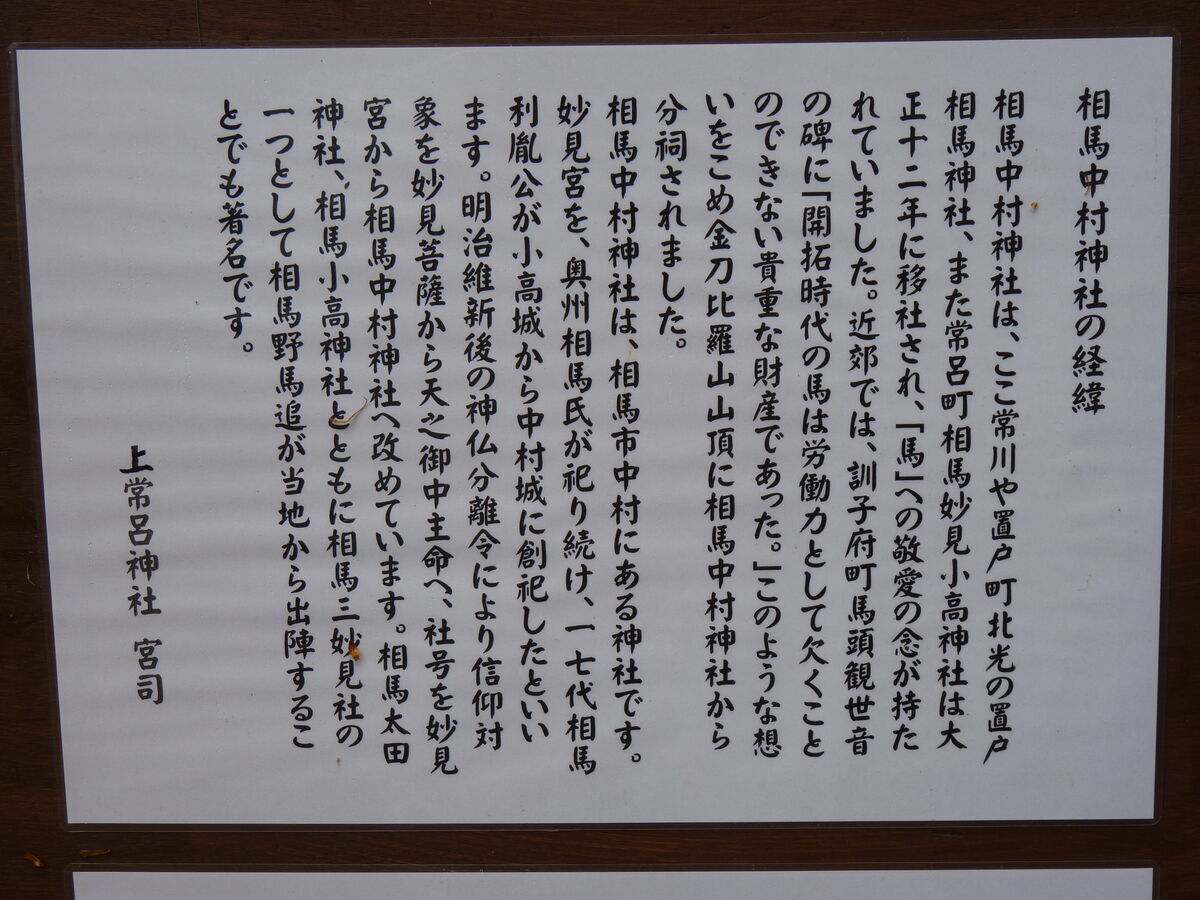 相馬中村神社の経緯
相馬中村神社は、ここ常川や置戸町北光の置戸
相馬神社、また常呂町相馬妙見小高神社は大
正十二年に移社され、「馬」への敬愛の念が持た
れていました。近郊では、訓子府町馬頭観世音
の碑に「開拓時代の馬は労働力として欠くこと
のできない貴重な財産であった。」このような想
いをこめ金刀比羅山山頂に相馬中村神社から
分祠されました。
相馬中村神社は、相馬市中村にある神社です。
妙見宮を、奥州相馬氏が祀り続け、一七代相馬
利胤公が小高城から中村城に創祀したといい
ます。明治維新後の神仏分離令により信仰対
象を妙見菩薩から天之御中主命へ、社号を妙見
宮から相馬中村神社へ改めています。相馬太田
神社、相馬小高神社とともに相馬三妙見社の
一つとして相馬野馬追が当地から出陣するこ
とでも著名です。
上常呂神社 宮司